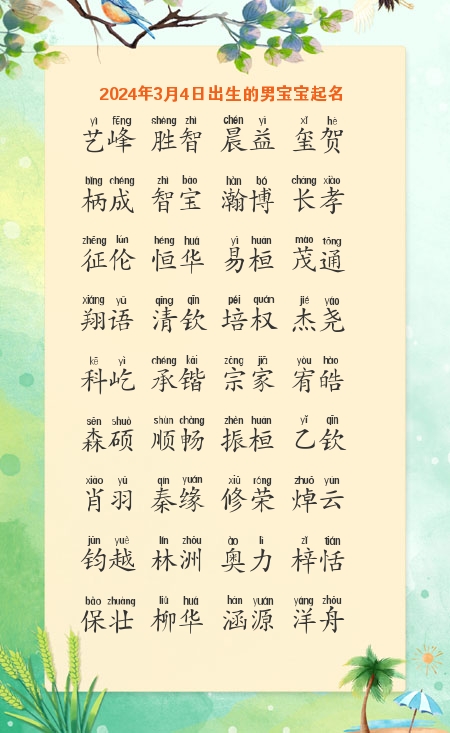 2024年3月4日出生的男宝宝起名
yì fēng shèng zhì chén yì xǐ hè
艺峰 胜智 晨益 玺贺
bǐng chéng zhì bǎo hàn bó cháng xiào
柄成 智宝 瀚博 长孝
zhēng lún héng huá yì huán mào tōng
征伦 恒华 易桓 茂通
xiáng yǔ qīng qīn péi quán jié yáo
翔语 清钦 培权 杰尧
kē yì chéng kǎi zōng jiā yòu hào
科屹 承锴 宗家 宥皓
sēn shuò shùn chàng zhèn huán yǐ qīn
森硕 顺畅 振桓 乙钦
xiào yǔ qín yuán xiū róng zhuō yún
肖羽 秦缘 修荣 焯云
jūn yuè lín zhōu ào lì zǐ tián
钧越 林洲 奥力 梓恬
bǎo zhuàng liǔ huá hán yuán yáng zhōu
保壮 柳华 涵源 洋舟